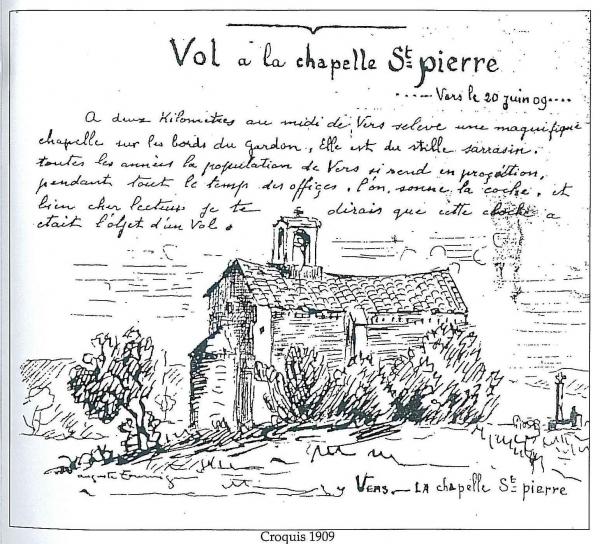 Vol a la chapelle St pierre
Vers le 20 juin 09
A deux Kilometres au midi de Vers seleve une magnifique
chapelle sur les bords du Gardon, Elle est du stille sarrasin.
toutes les années la population de Vers si rend en
pendant tout le temps des offices. l'on sonne la coche, et
bien cher lecteur je te dirais que cette cloche a
etait l'objet d'un Vol.
auguste
Vers. - La chapelle St pierre
Croquis 1909